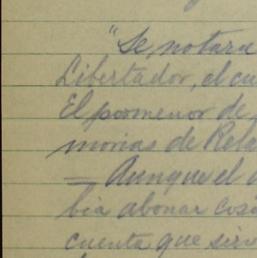 "Se, notara
Libertador, el cu
El pormenor de
morias de Rela
— Aunque el
bia abonar cosi
cuenta que sirv